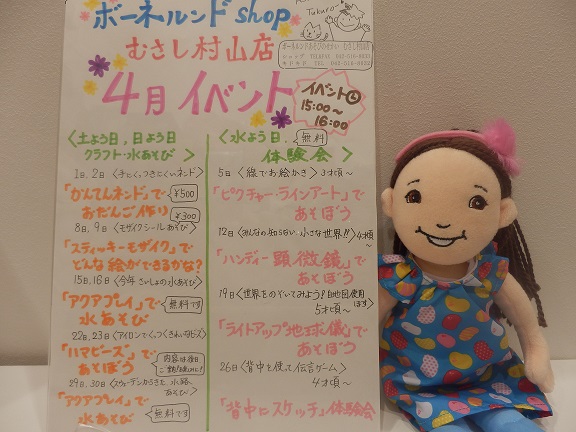 ボーネルンド shop
むさし村山店
4月 イベント
イベント
15:00〜
16:00
〈土よう日,日よう日
クラフト・水あそび〉
1日,2日 〈手にくっつきにくいネンド〉
「かんてんネンド」で
¥500
おだんご作り
¥300
8日,9日 〈モザイクシールあそび〉
「スティッキーモザイク」で
どんな絵ができるかな?
15日,16日 〈今年さいしょの水あそび〉
「アクアプレイ」で
水あそび
無料です
22日,23日 〈アイロンでくっつくきれいなビーズ〉
「ハマビーズ」で
あそぼう
29日,30日 〈スウェーデンから
「アクアプレイ」で
水あそび
無料です
〈水よう日,
無料
体験会〉
5日 〈線でお絵かき〉3才頃〜
「ピクチャー・ラインアート」で
あそぼう
12日 〈みんなの知らない小さな世界!!〉4才頃〜
「ハンディー顕微鏡」で
あそぼう
19日 〈世界をのぞいてみよう♪白地図使用
5才頃〜
「ライトアップ地球儀」で
あそぼう
26日 〈背中を使って伝言ゲーム〉
4才頃〜
「背中にスケッチ」体験会